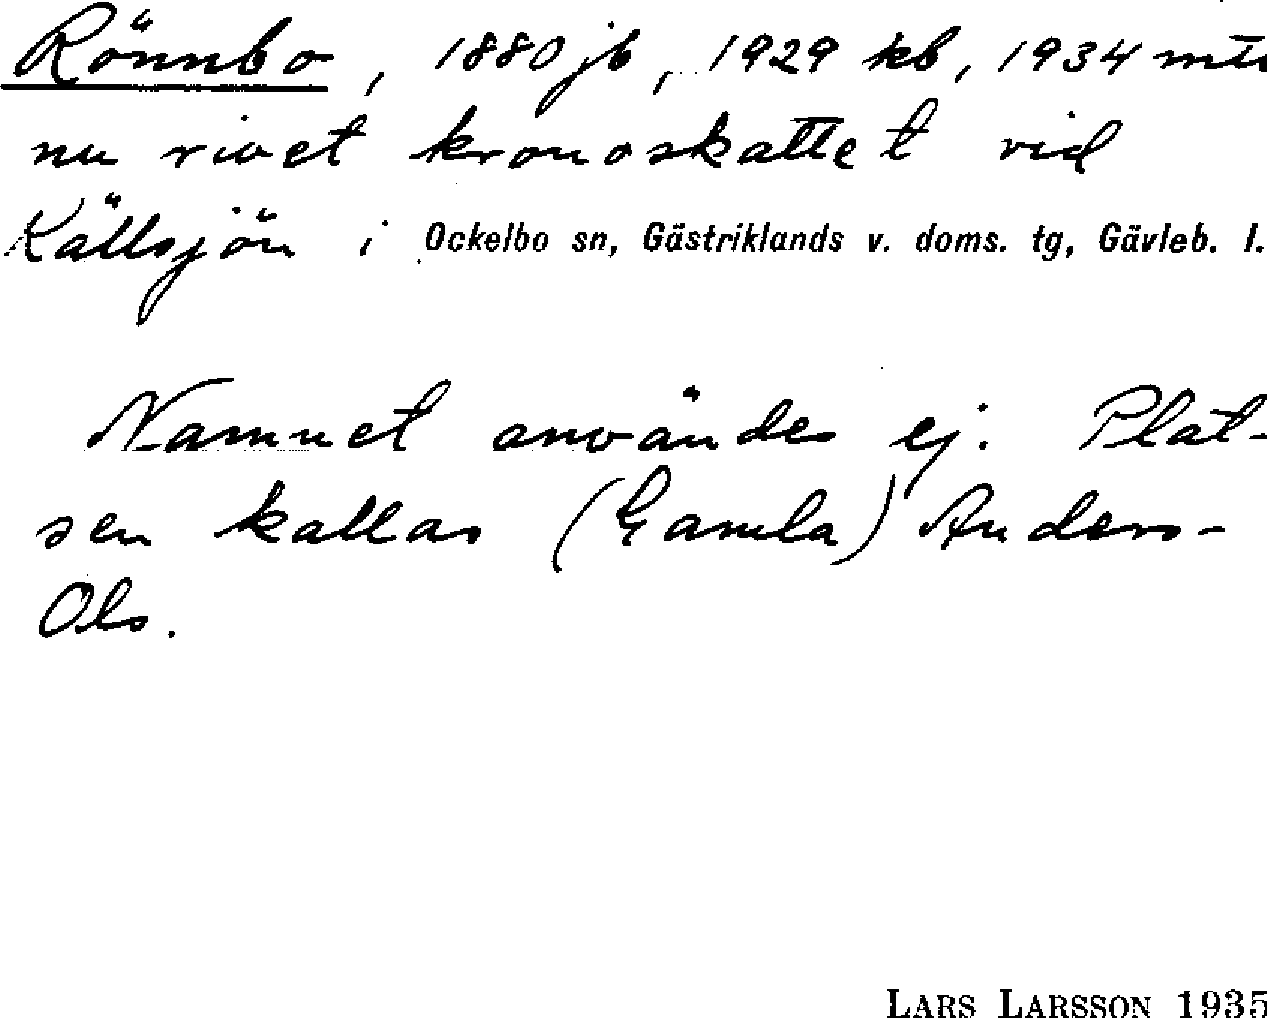 Rönnbo, 1880 jb, 1929 kb, 1934 mtl
nu rivet kronoskattet vid
Källsjön i Ockelbo sn, Gästriklands v. doms. tg, Gävleb. l.
Namnet användes ej. Plat-
sen kallas (Gamla) Anders-
Ols.
LARS LARSSON 1935